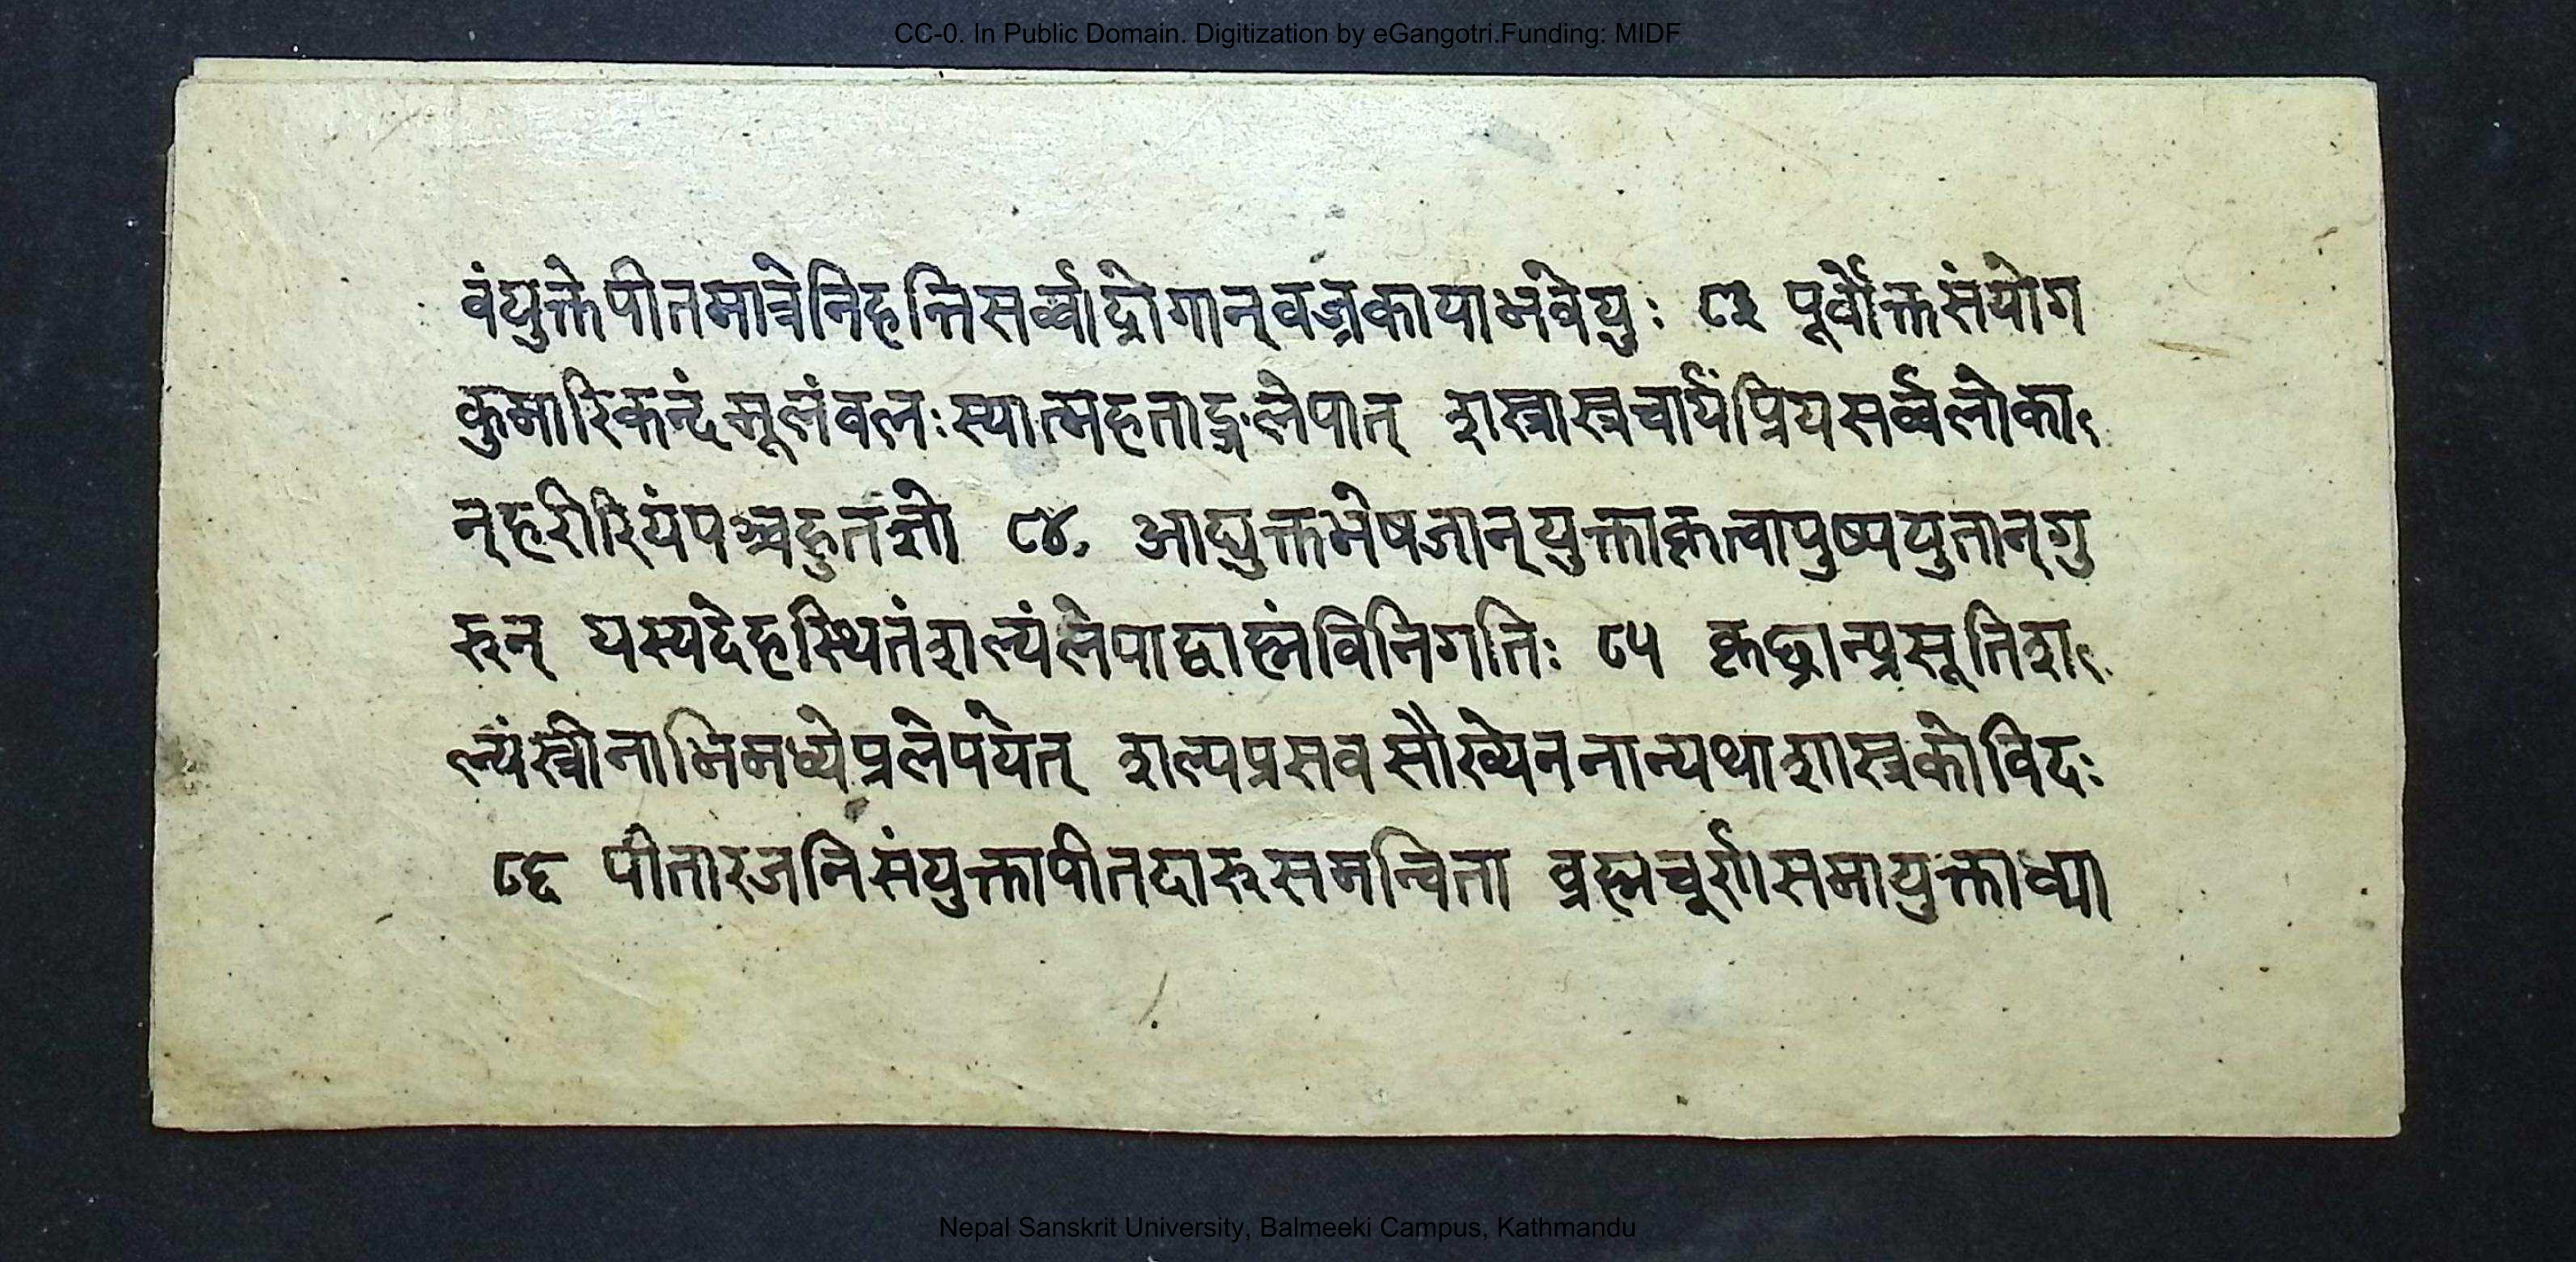 CC-0. In Public Domain. Digitization by eGangotri.Funding: MIDF
वंद्युक्तेपीतमात्रेनिहन्तिसर्व्वाद्रोगान्वज्रकायाभवेयुः ८३ पूर्वोक्तसंयोग
कुमारिकन्दंमूलंवलःस्यात्महताङ्गलेपात् शस्त्रास्त्रचार्यंप्रियसर्व्वलोका
न्हरीरियंपञ्चहुतशो ८४ आद्युक्तभेषजान्युक्ताकृत्वापुष्पयुतान्गु
रुन् यस्यदेहस्थितंशल्यंलेपाद्वाह्नंविनिगतिः ८५ कृछ्रान्प्रसूतिश
ल्यंस्त्रीनाभिमध्येप्रलेपयेत् शल्यप्रसवसौख्येननान्यथाशास्त्रकोविदः
८६ पीतारजनिसंयुक्तापीतदारुसमन्विता व्रह्मचूर्णसमायुक्ताव्या
Nepal Sanskrit University, Balmeeki Campus, Kathmandu